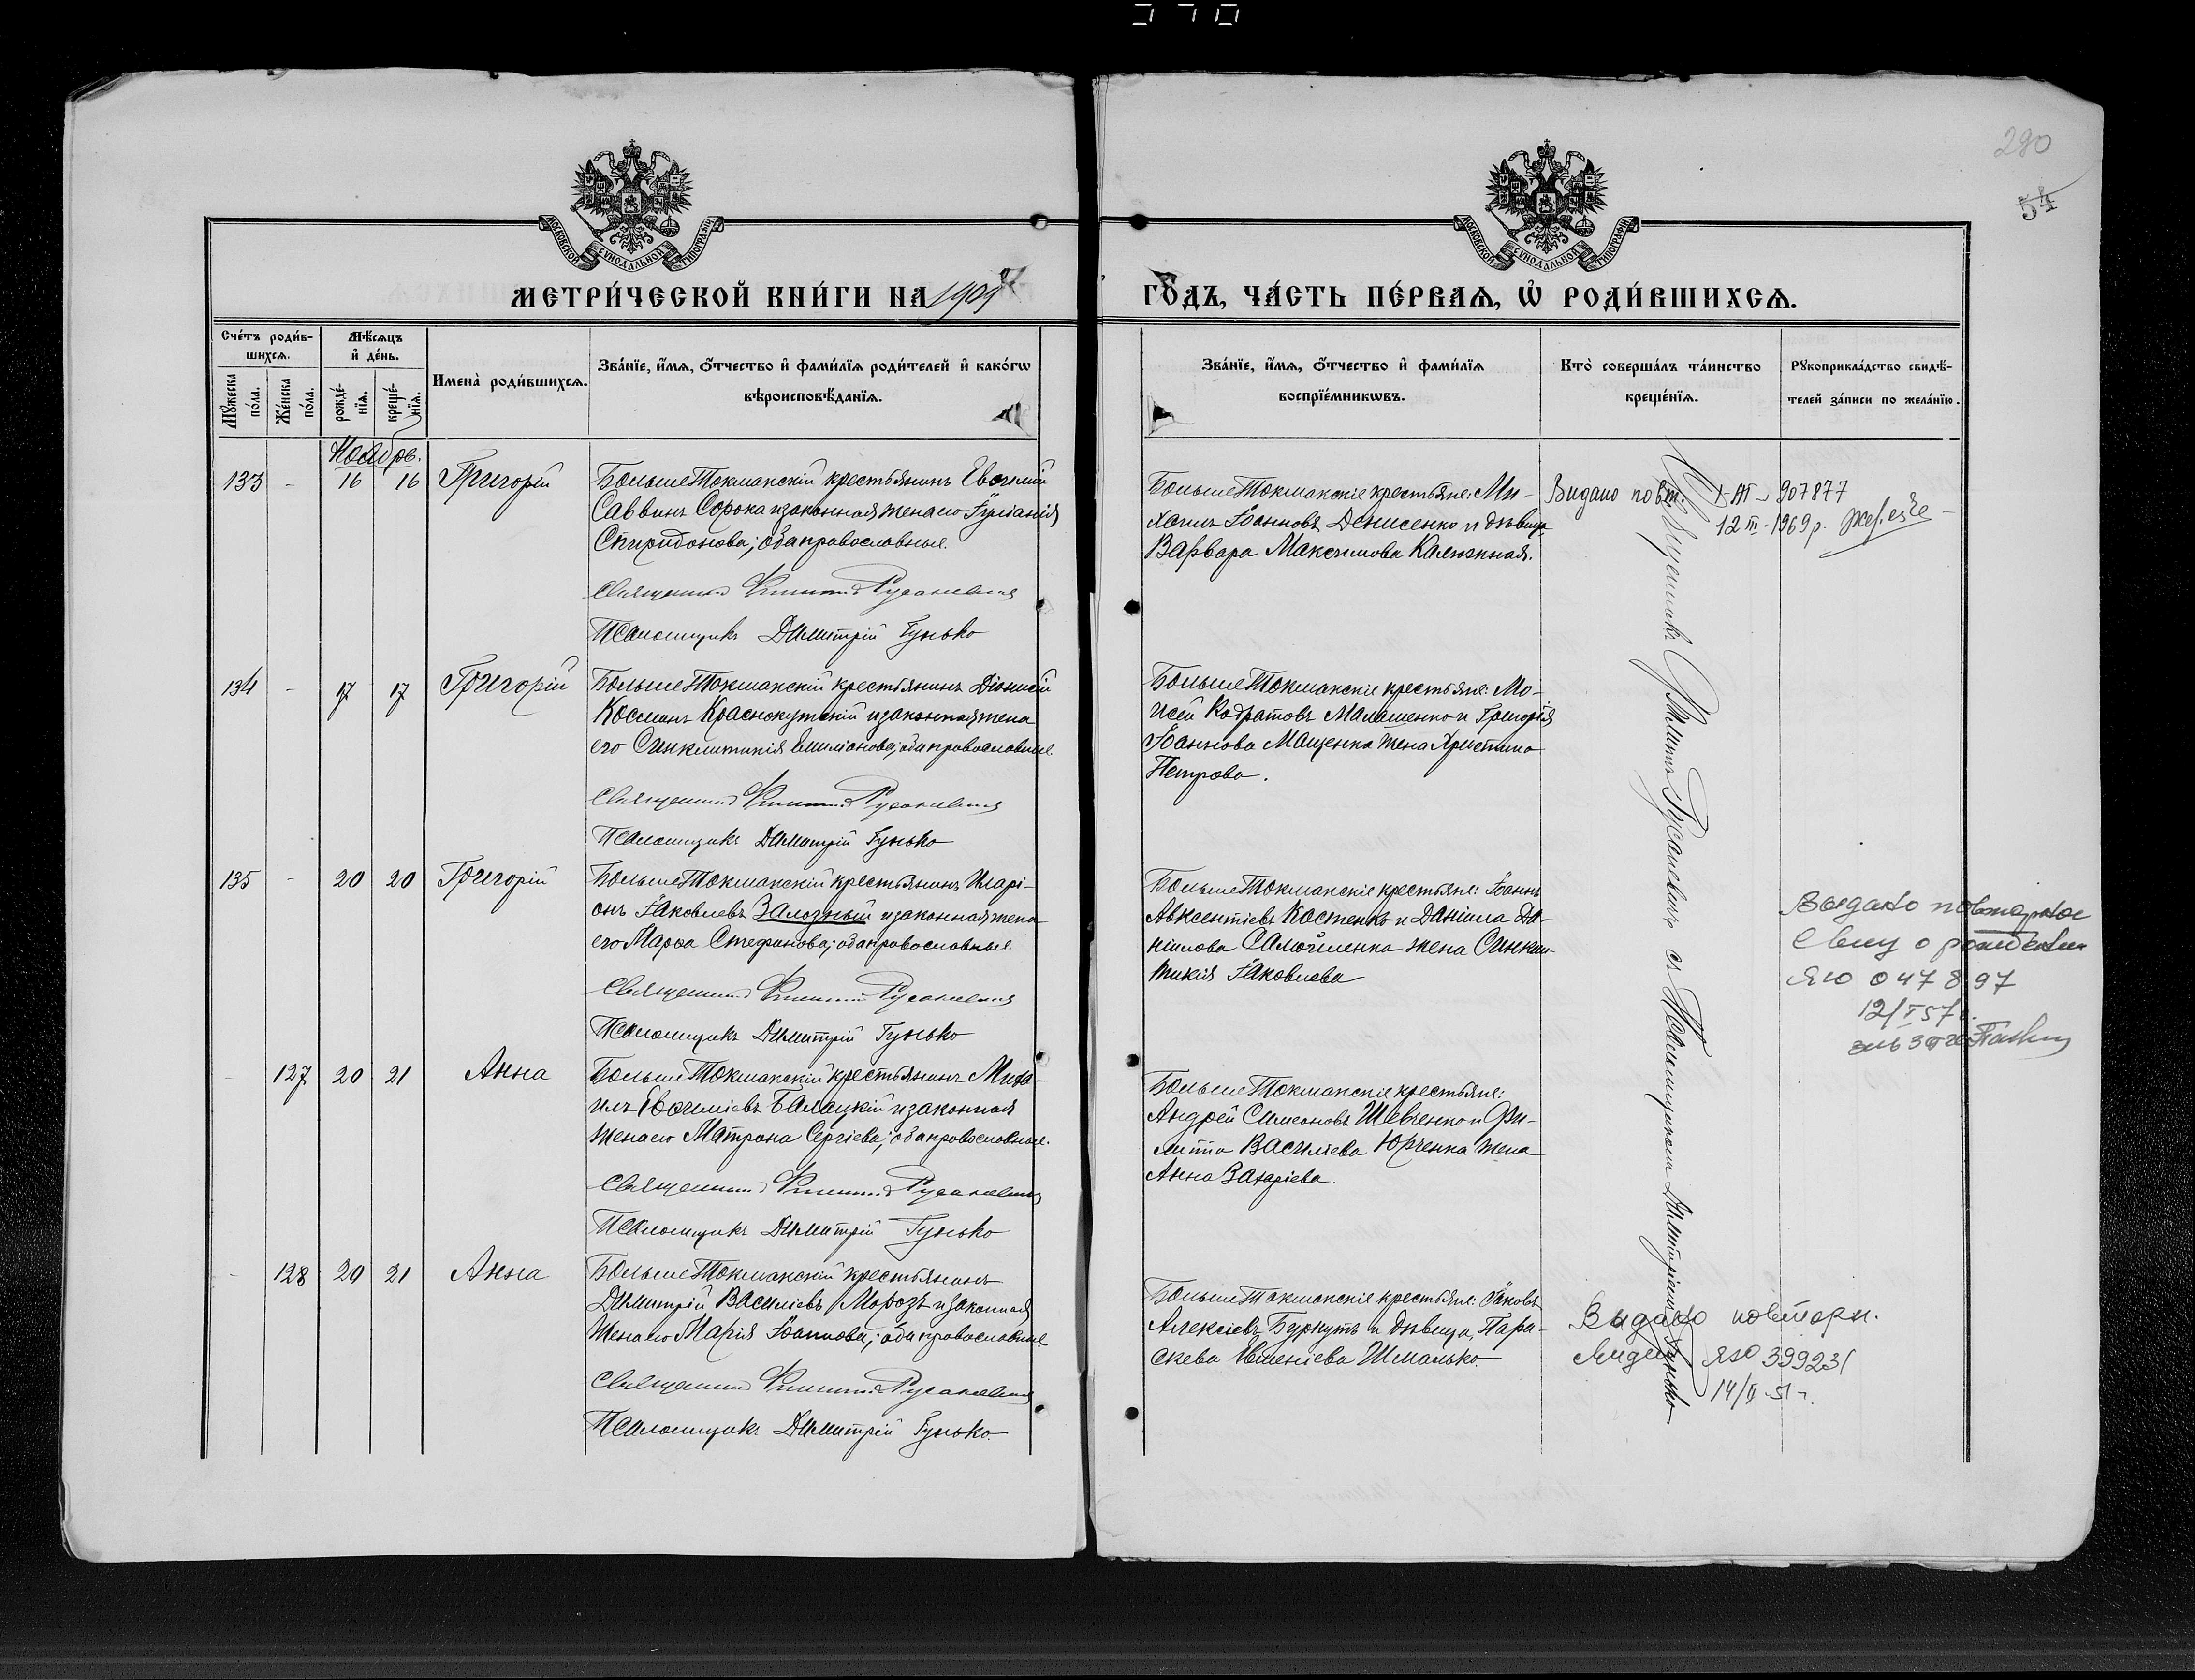 280
54
МОСКОВСКОЙ СѴНОДАЛЬНОЙ ТИПОГРАФІИ
МОСКОВСКОЙ СѴНОДАЛЬНОЙ ТИПОГРАФІИ
МЕТРИ́ЧЕСКОЙ КНИ́ГИ НА 1909
ГО́ДЪ, ЧА́СТЬ ПЕ́РВАѦ, Ѡ҆ РОДИ́ВШИХСѦ.
Сче́тъ роди́в-
шихсѧ.
Мꙋ́жеска по́ла.
Же́нска по́ла.
Мѣ́сѧцъ и҆ де́нь.
рожде́-
нїѧ.
креще́-
нїѧ.
Имена̀ роди́вшихсѧ.
Зва́нїе, и҆́мѧ, ѻ҆́тчество и҆ фами́лїѧ роди́телей и҆ како́гѡ
вѣроисповѣ́данїѧ.
Зва́нїе, и҆́мѧ, ѻ҆́тчество и҆ фами́лїѧ
воспрїе́мникѡвъ.
Кто̀ соверша́лъ та́инство
креще́нїѧ.
Рꙋкоприкла́дство свидѣ́-
телей за́писи по жела́нїю.
Ноябрь.
133 - 16 16 Григорій
БольшеТокмакскій крестьянинъ Евѳимій
Саввинъ Сорока и законная жена его Іуліанія
Спиридонова; оба православные.
Священникъ Филиппъ Русаневичъ
Псаломщикъ Димитрій Гунько
БольшеТокмакскіе крестьяне: Ми-
хаилъ Іоанновъ Денисенко и дѣвица
Варвара Максимова Калюжная.
Видано повт. 907877
12 III 1969 р.
134 - 17 17 Григорій
БольшеТокмакскій крестьянинъ Діонисій
Косминъ Краснокутскій и законная жена
его Синклитикія Емиліанова; оба православные.
Священникъ Филиппъ Русаневичъ
Псаломщикъ Димитрій Гунько
БольшеТокмакскіе крестьяне: Мо-
исей Кодратовъ Малашенко и Григорія
Іоаннова Мащенка жена Христина
Петрова.
135 - 20 20 Григорій
БольшеТокмакскій крестьянинъ Иларі-
онъ Іаковлевъ Залозный и законная жена
его Марѳа Стефанова; оба православные.
Священникъ Филиппъ Русаневичъ
Псаломщикъ Димитрій Гунько
БольшеТокмакскіе крестьяне: Іоаннъ
Авксентіевъ Костенко и Даніила Да-
ніилова Самойленка жена Синкли-
тикія Іаковлева
Выдано повторное
Св-ву о рождении
ЯЮ 047897
12/I 57 г.
- 127 20 21 Анна
БольшеТокмакскій крестьянинъ Миха-
илъ Евѳиміевъ Балацкій и законная
жена его Матрона Сергіева; оба православные.
Священникъ Филиппъ Русаневичъ
Псаломщикъ Димитрій Гунько
БольшеТокмакскіе крестьяне:
Андрей Симеоновъ Шевченко и Фи-
липпа Василіева Юрченка жена
Анна Захаріева.
- 128 20 21 Анна
БольшеТокмакскій крестьянинъ
Димитрій Василіевъ Морозъ и законная
жена его Марія Іоаннова; оба православные.
Священникъ Филиппъ Русаневичъ
Псаломщикъ Димитрій Гунько.
БольшеТокмакскіе крестьяне: Іаковъ
Алексіевъ Буркутъ и дѣвица Пара-
скева Евгеніева Шмалько.
Видано повторн.
ЯЮ 399231
14/II 51 г.
Священникъ Филиппъ Русаневичъ съ Псаломщикомъ Димитріемъ Гунько